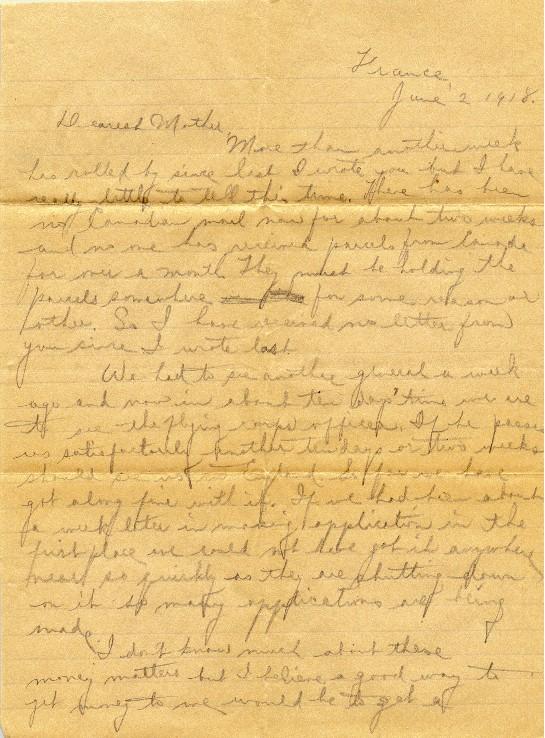 France,
June 2 1918.
Dearest Mother,
More than another week
has rolled by since last I wrote you but I have
really little to tell this time. There has been
no Canadian mail now for about two weeks
and no one has received parcels from Canada
for over a month. They must be holding the
parcels somewhere for some reason or
other. So I have received no letter from
you since I wrote last.
We had to see another general a week
ago and now in about ten days' time we are
to see the flying corps officer. If he passes
us satisfactorily another ten days or two weeks
should see us in England. So far we have
got along fine with it. If we had been about
a week later in making application in the
first place we could not have got it anywhere
near so quickly as they are shutting down
on it so many applications are being
made.
I don't know much about these
money matters but I believe a good way to
get money to me would be to get a